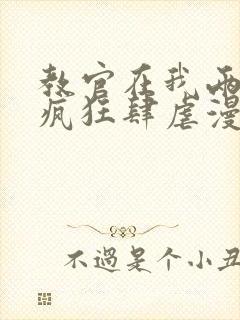 教官在我两
疯狂肆虐漫
不過是个小丑